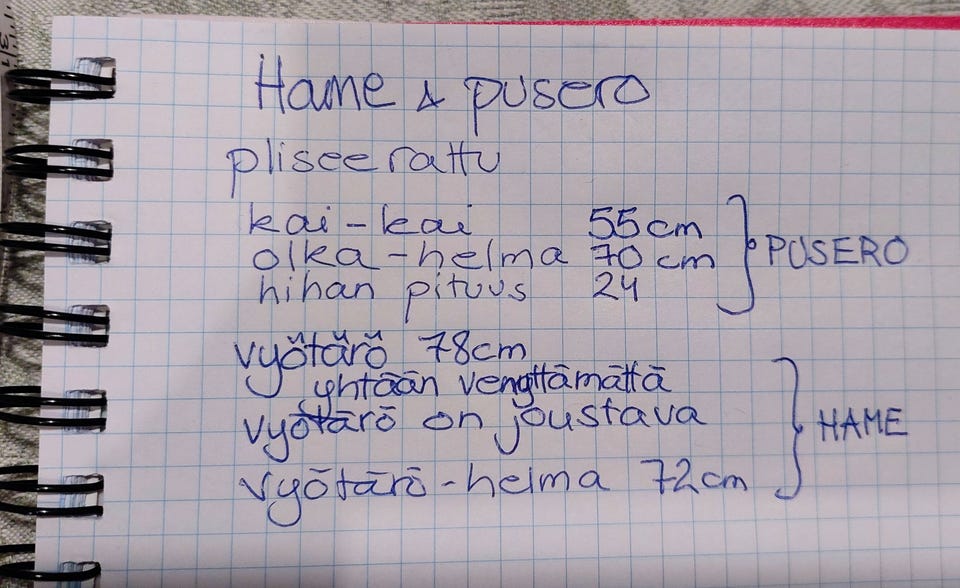 Hame & pusero
pliseerattu
kai-kai 55cm
olka-helma 70 cm
hihan pituus 24
PUSERO
vyötärö 78cm
yhtään venyttämättä
vyötärö on joustava
vyötärö-helma 72cm
HAME